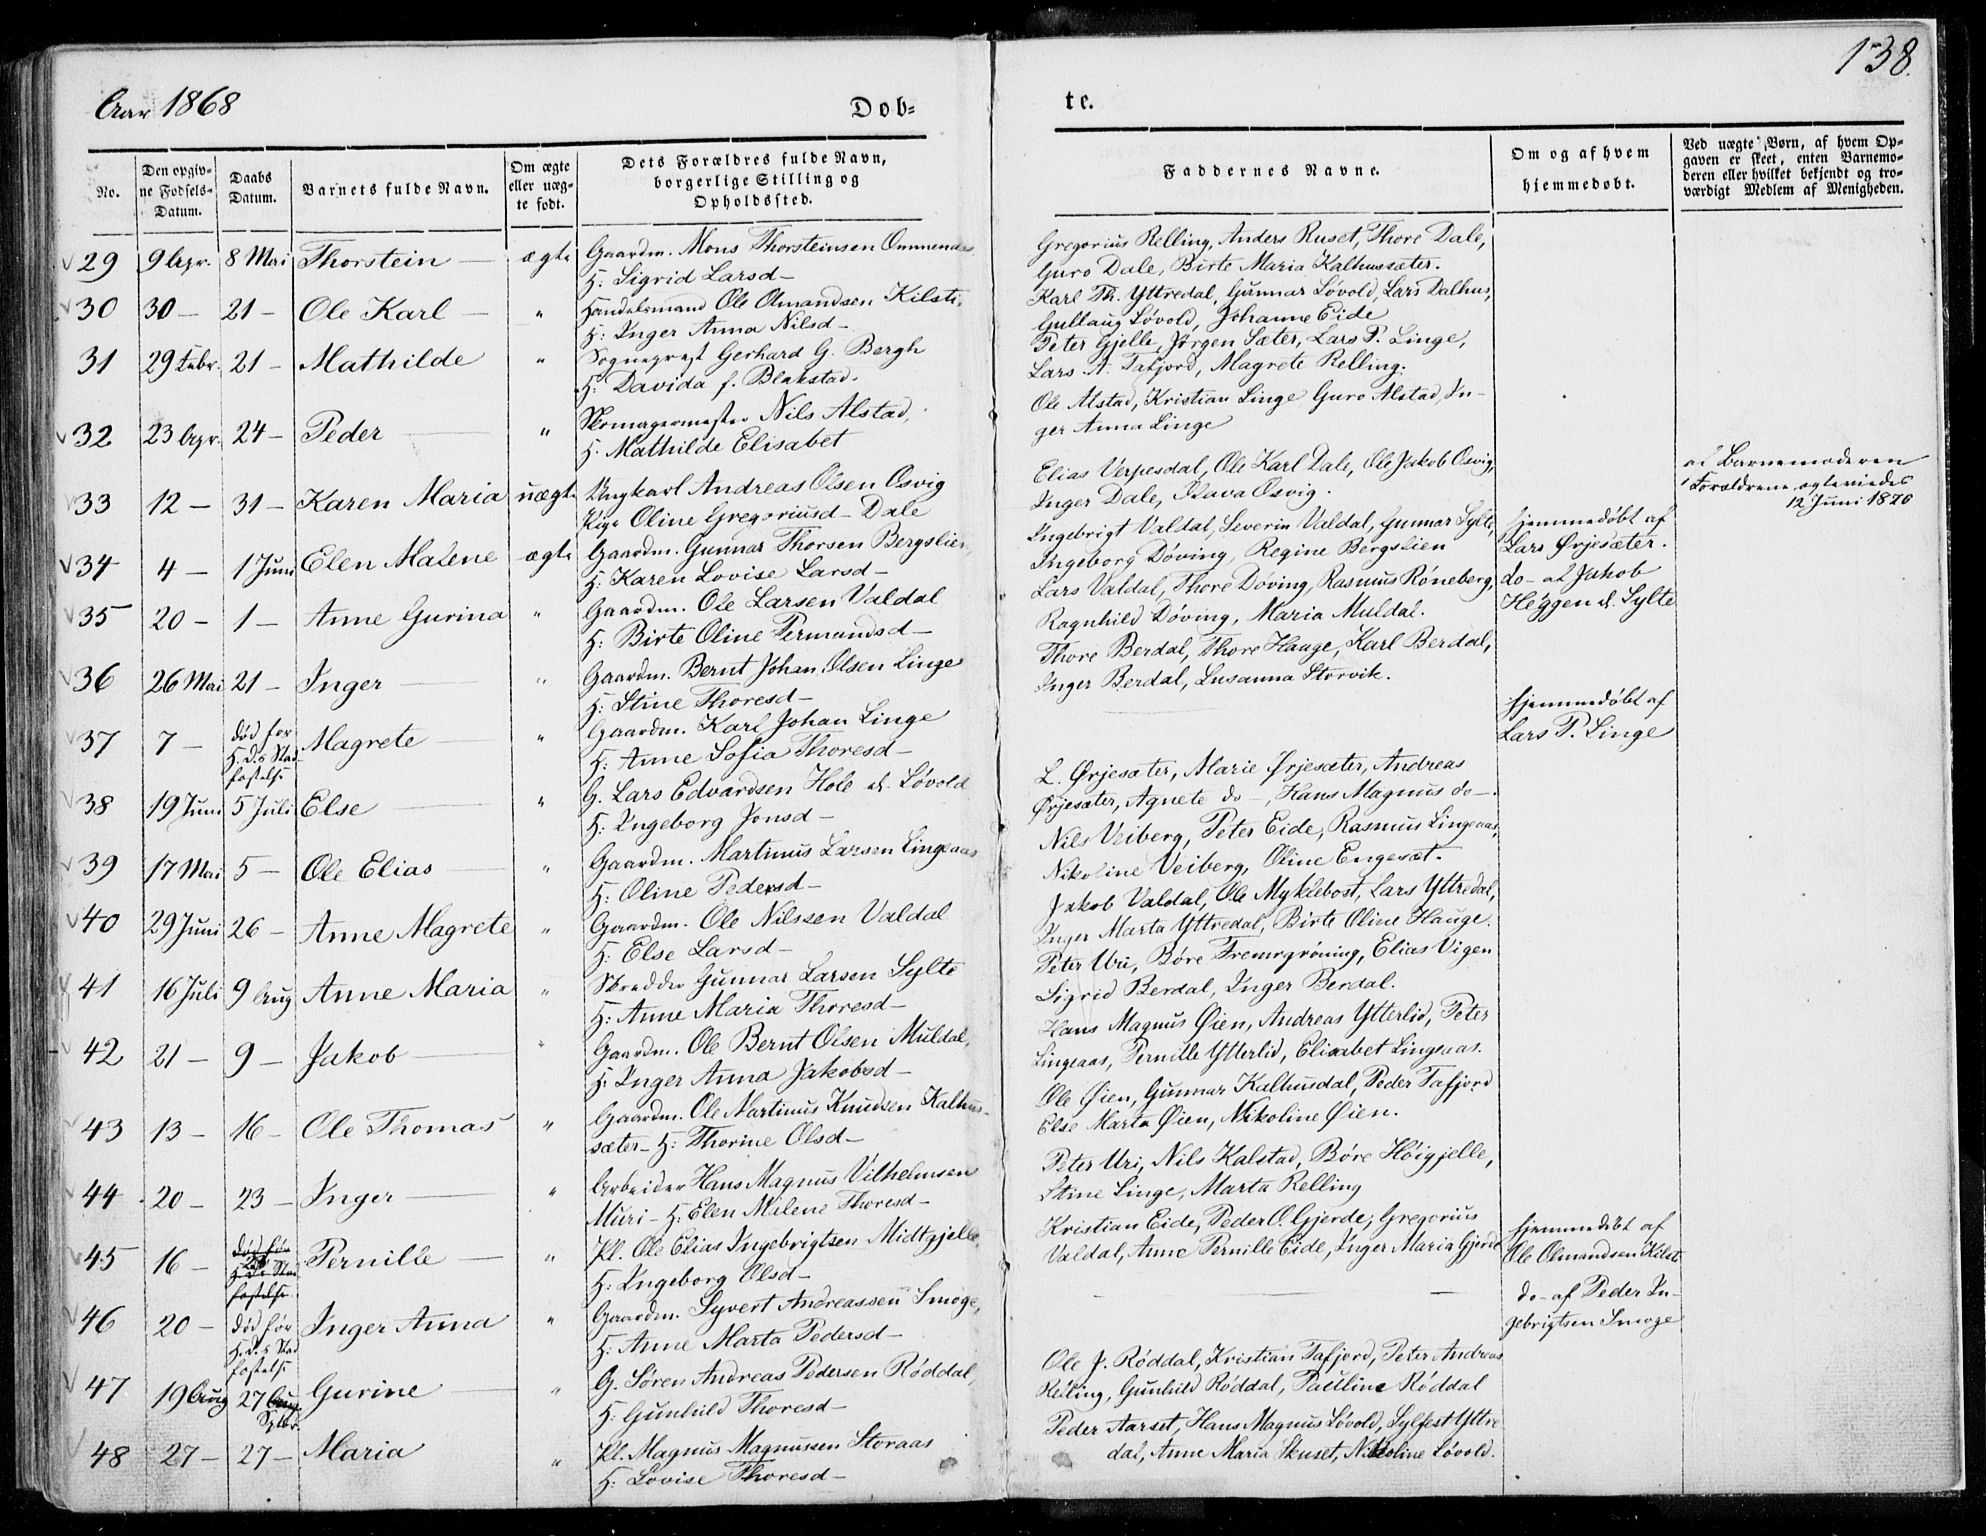 Aar 1868
Døb=
te.
138.
No.
Den opgiv-
ne Fødsels-
Datum.
Daabs
Datum.
Barnets fulde Navn.
Om ægte
eller uæg-
te født.
Dets Forældres fulde Navn,
borgerlige Stilling og
Opholdssted.
Faddernes Navne.
Om og af hvem
hjemmedøbt.
Ved uægte Børn, af hvem Op-
gaven er skeet, enten Barnemo-
deren eller hvilket bekjendt og tro-
værdigt Medlem af Menigheden.
29 9 Apr. 8 Mai Thorstein — ægte Gaardm. Mons Thorsteinsen
H: Sigrid Larsd—
Gregorius Relling, Anders Ruset, Thore Dale,
Guro Dale, Birte Maria Kalhussæter.
30 30 — 21 — Ole Karl — " Handelsmand Ole Olmandsen Kilsti,
H: Inger Anna Nilsd—
Karl Th. Yttredal, Gunnar Løvold, Lars Dalhus,
Gullaug Løvold, Johanne Eide
31 29 Febr. 21 — Mathilde " Sogneprest Gerhard G. Bergh
H: Davida f. Blakstad.
Peter Gjelle, Jørgen Sæter, Lars P. Linge,
Lars A. Tafjord, Magrete Relling.
32 23 Apr. 24 — Peder — " Skomagermester Nils Alstad,
H. Mathilde Elisabet
Ole Alstad, Kristian Linge Guro Alstad, In-
ger Anna Linge
33 12 — 31 — Karen Maria uægte Ungkarl Andreas Olsen Osvig
Pige Oline Gregoriusd— Dale
Elias Verpesdal, Ole Karl Dale, Ole Jakob Osvig,
Inger Dale, Osvig.
af Barnemoderen
Forældrene ægteviede
12 Juni 1870
34 4 — 1 Juni Elen Malene ægte Gaardm. Gunnar Thorsen Bergslien,
H: Karen Lovise Larsd—
Ingebrigt Valdal, Severin Valdal, Gunnar Sylte,
Ingeborg Døving, Regine Bergslien
hjemmedøbt af
Lars Ørjesæter.
35 20 — 1 — Anne Gurina " Gaardm. Ole Larsen Valdal
H: Birte Oline Permandsd—
Lars Valdal, Thore Døving, Rasmus Røneberg,
Ragnhild Døving, Maria Muldal.
do— af Jakob
Høggen Sylte
36 26 Mai 21 — Inger — " Gaardm. Bernt Johan Olsen Linge
H: Stine Thoresd—
Thore Berdal, Thore Hauge, Karl Berdal,
Inger Berdal, Susanna Storvik.
37 7 — død før
H. D.s Stad-
fæstelse
Magrete — " Gaardm. Karl Johan Linge
H: Anne Sofia Thoresd—
hjemmedøbt af
Lars P. Linge
38 19 Juni 5 Juli Else — " G. Lars Edvardsen Hole Løvold
H: Ingeborg Jonsd—
L. Ørjesæter, Marie Ørjesæter, Andreas
Ørjesæter, Agnete do—, Hans Magnus do—.
39 17 Mai 5 — Ole Elias — " Gaardm. Martinus Larsen Lingeaas
H: Oline Pedersd—
Nils Veiberg, Peter Eide, Rasmus Lingeaas,
Nikoline Veiberg, Oline Engeset.
40 29 Juni 26 — Anne Magrete " Gaardm. Ole Nilssen Valdal
H: Else Larsd—
Jakob Valdal, Ole Myklebost, Lars Yttredal,
Inger Marta Yttredal, Birte Oline Hauge.
41 16 Juli 9 Aug Anne Maria " Skrædder Gunnar Larsen Sylte
H: Anne Maria Thoresd—
Peter Uri, Børe Fremrgrøning, Elias Vigen
Sigrid Berdal, Inger Berdal.
42 21 — 9 — Jakob — " Gaardm. Ole Bernt Olsen Muldal,
H: Inger Anna Jakobsd—
Hans Magnus Øien, Andreas Ytterlid, Peter
Lingeaas, Pernille Ytterlid, Elisabet Lingeaas.
43 13 — 16 — Ole Thomas " Gaardm. Ole Martinus Knudsen Kalhus-
sæter— H: Thorine Olsd—
Ole Øien, Gunnar Kalhusdal, Peder Tafjord
Else Marta Øien, Nikoline Øien.
44 20 — 23 — Inger — " Arbeider Hans Magnus Vilhelmsen
Muri— H: Elen Milene Thoresd—
Peter Uri, Nils Kalstad, Børe Høigjelle,
Stine Linge, Marta Relling
45 16 — død før
H. D.s Stad
fæstelse.
Pernille — " Pl. Ole Elias Ingebrigtsen Midtgjelle,
H: Ingeborg Olsd—
Kristian Eide, Peder O. Gjerde, Gregorius
Valdal, Anne Pernille Eide, Inger Maria Gjerde
hjemmedøbt af
Ole Olmandsen Kilsti
46 20 — død før
H. D.s Stad
fæstelse
Inger Anna " Gaardm. Syvert Andreassen Smoge,
H: Anne Marta Pedersd—
do— af Peder In-
gebrigtsen Smoge
47 19 Aug 27 Aug
Sptbr.
Gurine — " G. Søren Andreas Pedersen Røddal,
H: Gunhild Thoresd—
Ole J. Røddal, Kristian Tafjord, Peter Andreas
Relling, Gunhild Røddal, Pauline Røddal
48 27 — 27 — Maria " Pl. Magnus Magnussen Storaas
H: Lovise Thoresd—
Peder Aarset, Hans Magnus Løvold, Sylfest Yttre
dal, Anne Maria Skuset, Nikoline Løvold.